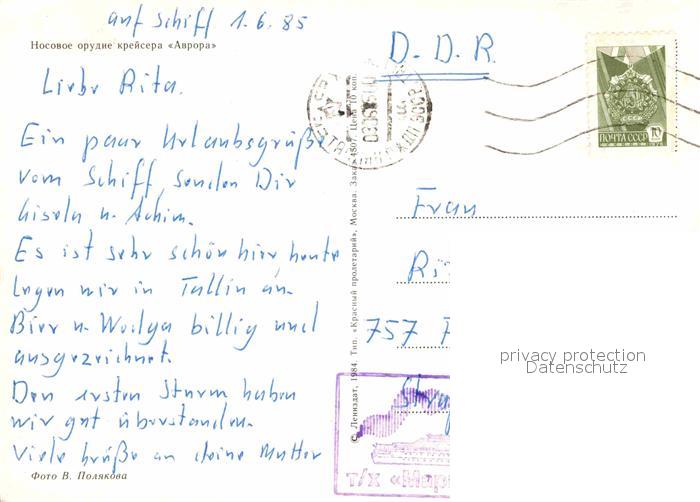 auf Schiff 1.6.85
Носовое орудие крейсера «Аврора»
Liebe Rita.
Ein paar Urlaubsgrüße
vom Schiff senden Dir
Gisela u. Achim.
Es ist sehr schön hier, heute
legen wir in Tallin an.
Bier u. Wodga billig und
ausgezeichnet.
Den ersten Sturm haben
wir gut überstanden.
Viele Grüße an deine Mutter
Фото В. Полякова
© Лениздат, 1984. Тип. «Красный пролетарий», Москва. Заказ 4507. Цена 10 коп.
D.D.R.
ПОЧТА СССР 10
Frau
757
privacy protection
Datenschutz
т/х «Мар